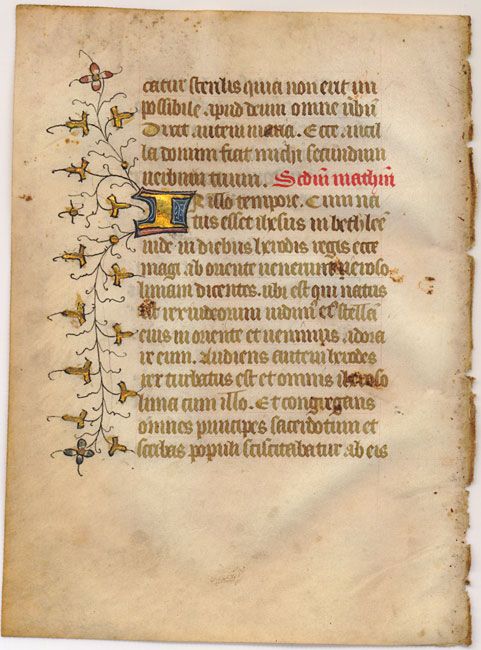 catur sterilis quia non erit im
possibile apud deum omne ūbū
Dixit autem maria. Ecce ancil
la domini fiat michi secundum
uerbum tuum. Scdm̄ mathm̄
In illo tempore. Cum na
tus esset ihesus in bethlee
iude in diebus herodis regis ecce
magi ab oriente uenerunt iheroso
limam dicentes. ubi est qui natus
est rex iudeorum uidim⁹ eī stella
eius in oriente et uenimus adora
re eum. Audiens autem herodes
rex turbatus est et omnis iheroso
lima cum illo. Et congregans
omnes principes sacerdotum et
scribas populi sciscitabatur ab eis